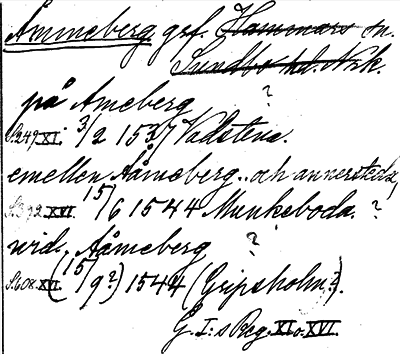 Åmmeberg gsf. Hammars sn.
Sundbo hd. Nrk.
på Ameberg ?
S.249.XI. 3/2 1537 Vadstena.
emellen Aåmeberg.. och annerstedz,
S.392.XVI. 15/6 1544 Munkeboda. ?
wid. Aåmeberg ?
S.608.XVI. (15/9?) 1544 (Gripsholm?).
G. I:s Reg. XI o. XVI.